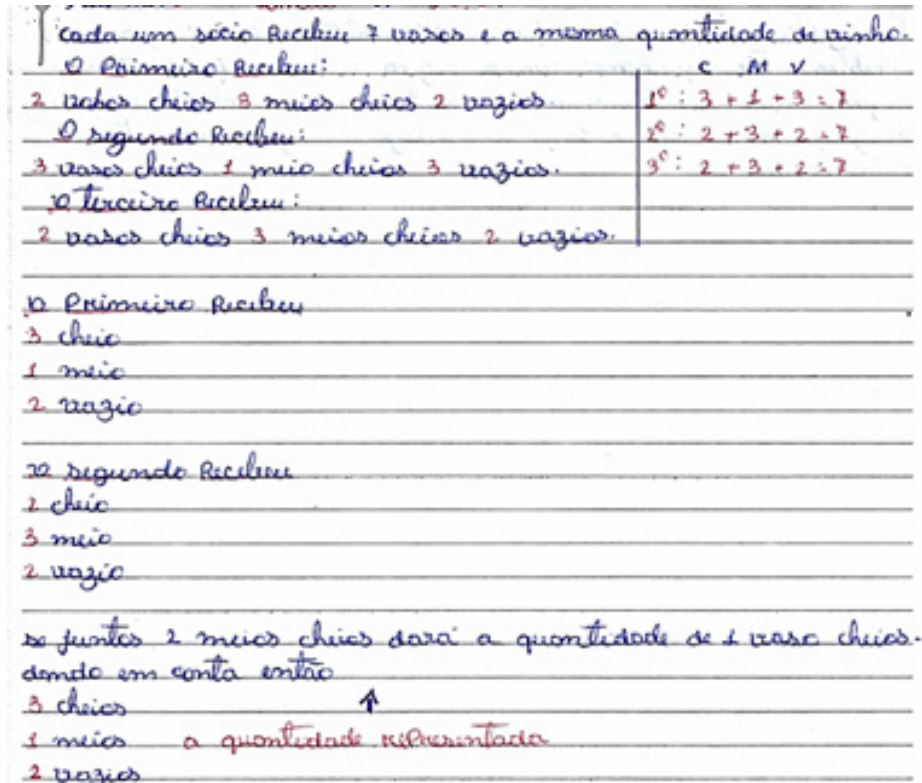 cada um sócio Recebeu 7 vasos e a mesma quantidade de vinho.
O Primeiro Recebeu:
2 vasos cheios 3 meios cheios 2 vazios
O segundo Recebeu:
3 vasos cheios 1 meio cheios 3 vazios.
O terceiro Recebeu:
2 vasos cheios 3 meios cheios 2 vazios.
C M V
1º: 3 + 1 + 3 = 7
2º: 2 + 3 + 2 = 7
3º: 2 + 3 + 2 = 7
O Primeiro Recebeu
3 cheio
1 meio
2 vazio
O segundo Recebeu
2 cheio
3 meio
2 vazio
se juntos 2 meios cheios dará a quantidade de 1 vaso cheios.
dando em conta então
3 cheios
1 meios a quantidade representada
2 vazios